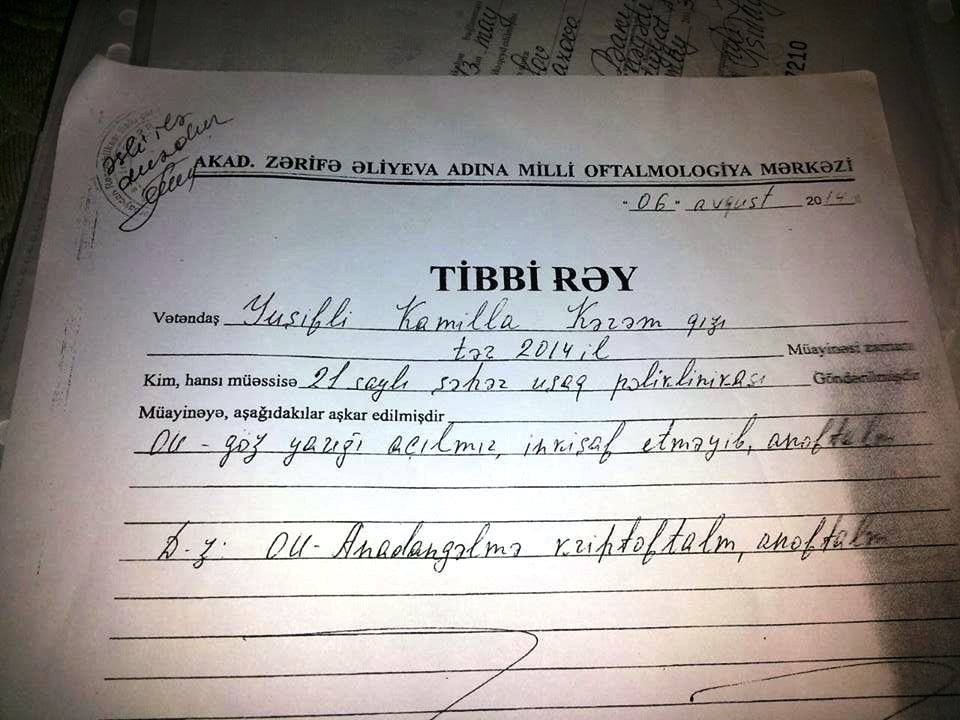 13 may
2210
əsli ilə
düzdür
AKAD. ZƏRİFƏ ƏLİYEVA ADINA MİLLİ OFTALMOLOGİYA MƏRKƏZİ
"06" avqust 2014
TİBBİ RƏY
Vətəndaş Yusifli Kamilla Kərəm qızı
təv 2014 il Müayinəsi zamanı
Kim, hansı müəssisə 21 saylı şəhər uşaq poliklinikası Göndərilmişdir
Müayinəyə, aşağıdakılar aşkar edilmişdir
OU - göz yarığı açılmır, inkişaf etməyib, anoftalm
D-z: OU - Anadangəlmə kriptoftalm, anoftalm